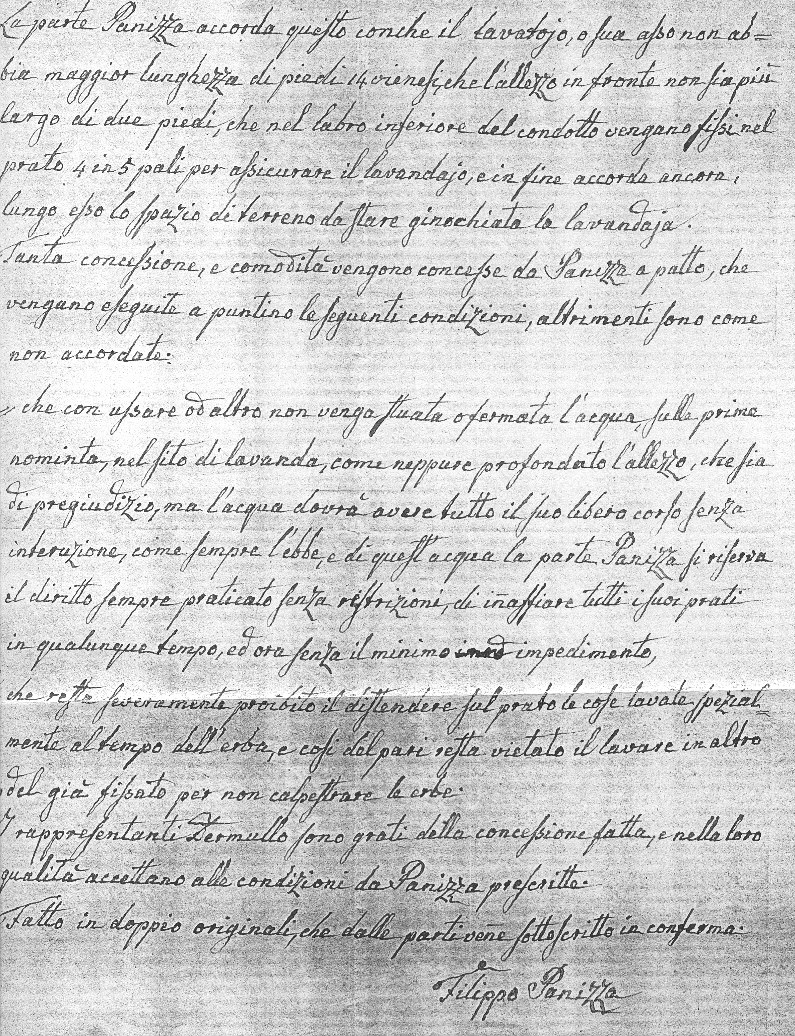 La parte Panizza accorda questo conche il lavatojo, o sua asso non ab=
bia maggior lunghezza di piedi 14 vienesi, che l'allezzo in fronte non sia più
largo di due piedi, che nel labro inferiore del condotto vengano fissi nel
prato 4 in 5 pali per assicurare il lavandajo, e in fine accorda ancora,
lungo esso lo spazio di terreno da stare ginochiata la lavandaja.
Tanta concessione, e comodità vengono concesse da Panizza a patto, che
vengano eseguite a puntino le seguenti condizioni, altrimenti sono come
non accordate:
„ che con ussare od altro non venga stuata o fermata l'acqua, sulle prime
nominta, nel sito di lavanda, come neppure profondato l'allezzo, che sia
di pregiudizio, ma l'acqua dovrà avere tutto il suo libero corso senza
interuzione, come sempre l'ebbe, e di quest'acqua la parte Panizza si riserva
il diritto sempre praticato senza restrizioni, di inaffiare tutti i suoi prati
in qualunque tempo, ed ora senza il minimo impedimento,
che resta severamente proibito il distendere sul prato le cose lavate spezial=
mente al tempo dell'erba, e così del pari resta vietato il lavare in altro
del già fissato per non calpestrare le erbe.
I rappresentanti Dermullo sono grati della concessione fatta, e nella loro
qualità accettano alle condizioni da Panizza prescritte.
Fatto in doppio originali, che dalle parti vene sottoscritto in conferma.
Filippo Panizza